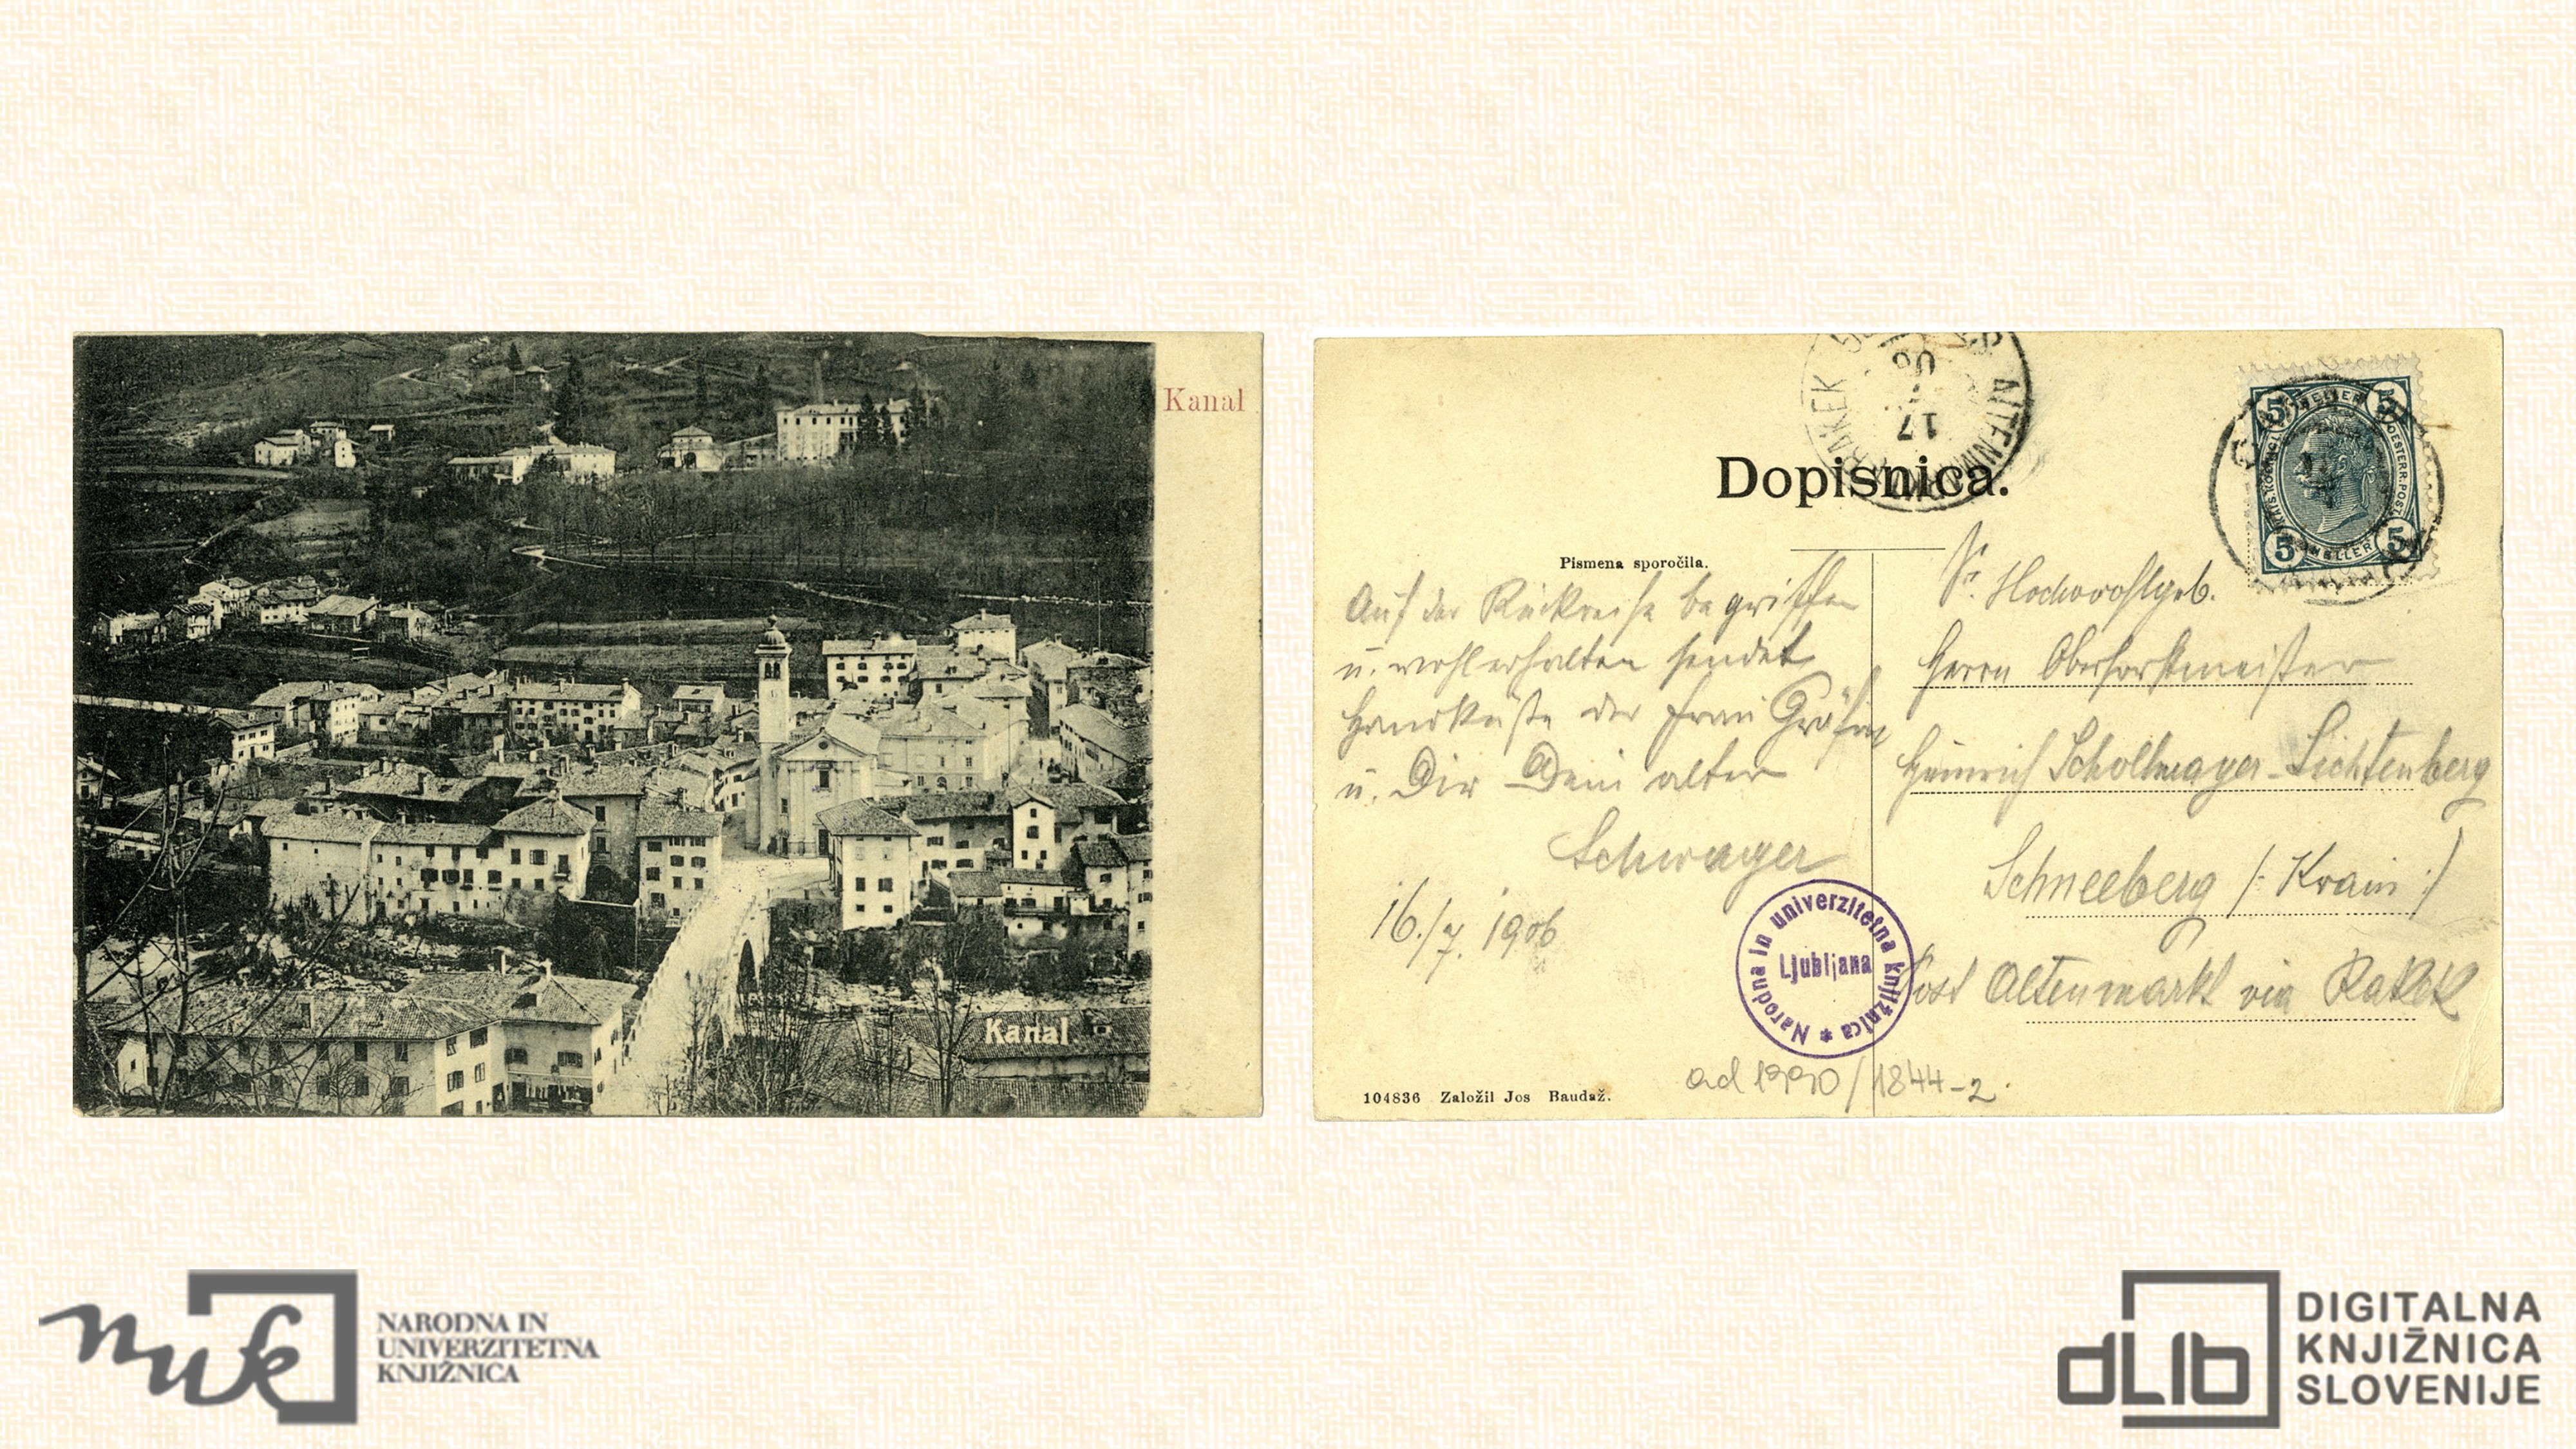 Kanal
Kanal
Dopisnica.
Pismena sporočila.
Auf der Rückreise begriffen
u. wohlerhalten sendet
Handküsse der Frau Gräfin
u. Dir Dein alter
Schwager
16./7. 1906
Sr. Hochwohlgeb.
Herrn Oberforstmeister
Heinrich Schollmayer-Lichtenberg
Schneeberg /: Krain :/
Post Altenmarkt via Rakek
RAKEK
17
06
5 HELLER 5
KAIS. KÖNIGL. OESTERR. POST
5 HELLER 5
Narodna in univerzitetna knjižnica *
Ljubljana
ad 1990/1844-2.
104836 Založil Jos Baudaž.
nuk
NARODNA IN
UNIVERZITETNA
KNJIŽNICA
dLib
DIGITALNA
KNJIŽNICA
SLOVENIJE